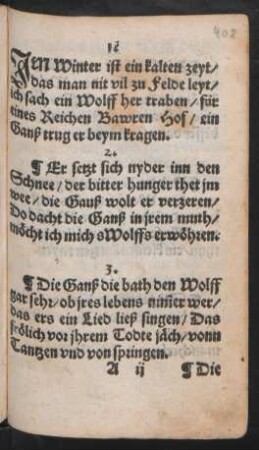 402
1.
JEN Winter ist ein kalten zeyt/
das man nit vil zu Felde leyt/
ich sach ein Wolff her traben/ für
eines Reichen Bawren Hof/ ein
Ganß trug er beym kragen.
2.
¶ Er setzt sich nyder inn den
Schnee/ der bitter hunger thet jm
wee/ die Gauß wolt er verzeren/
Do dacht die Ganß in jrem muth/
möcht ich mich sWolffs erwöhren.
3.
¶ Die Ganß die bath den Wolff
gar sehr/ ob jres lebens nim̄er wer/
das ers ein Lied ließ singen/ Das
frölich vor jhrem Todte jäch/ vonn
Tantzen vnd von springen.
A ij ¶ Die